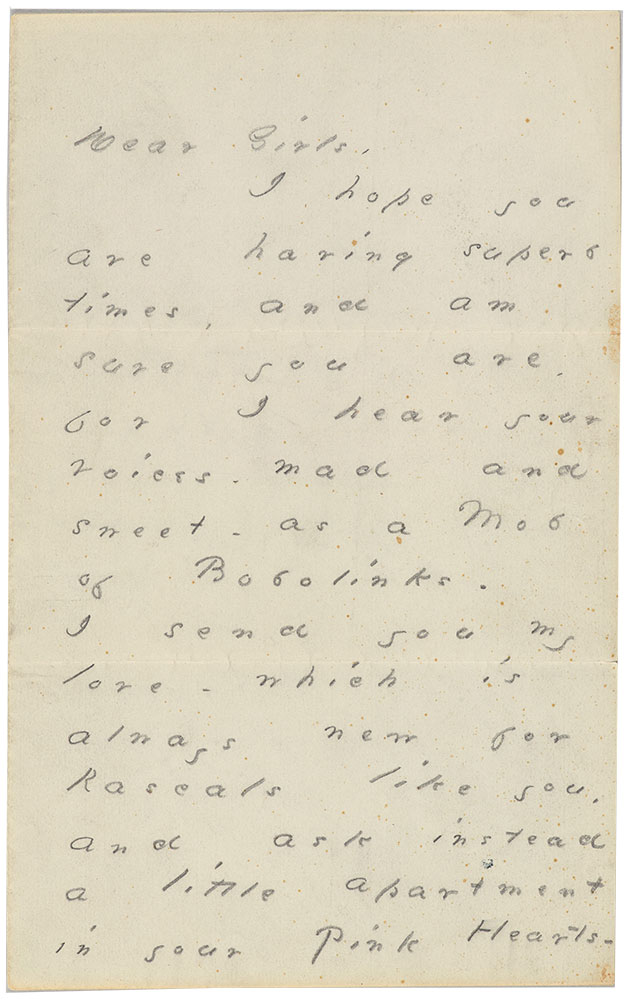 Dear Girls,
I hope you
are having superb
times, and am
sure you are,
for I hear your
voices - mad and
sweet - as a Mob
of Bobolinks.
I send you my
love - which is
always new for
Rascals like you,
and ask instead
a little apartment
in your Pink Hearts -